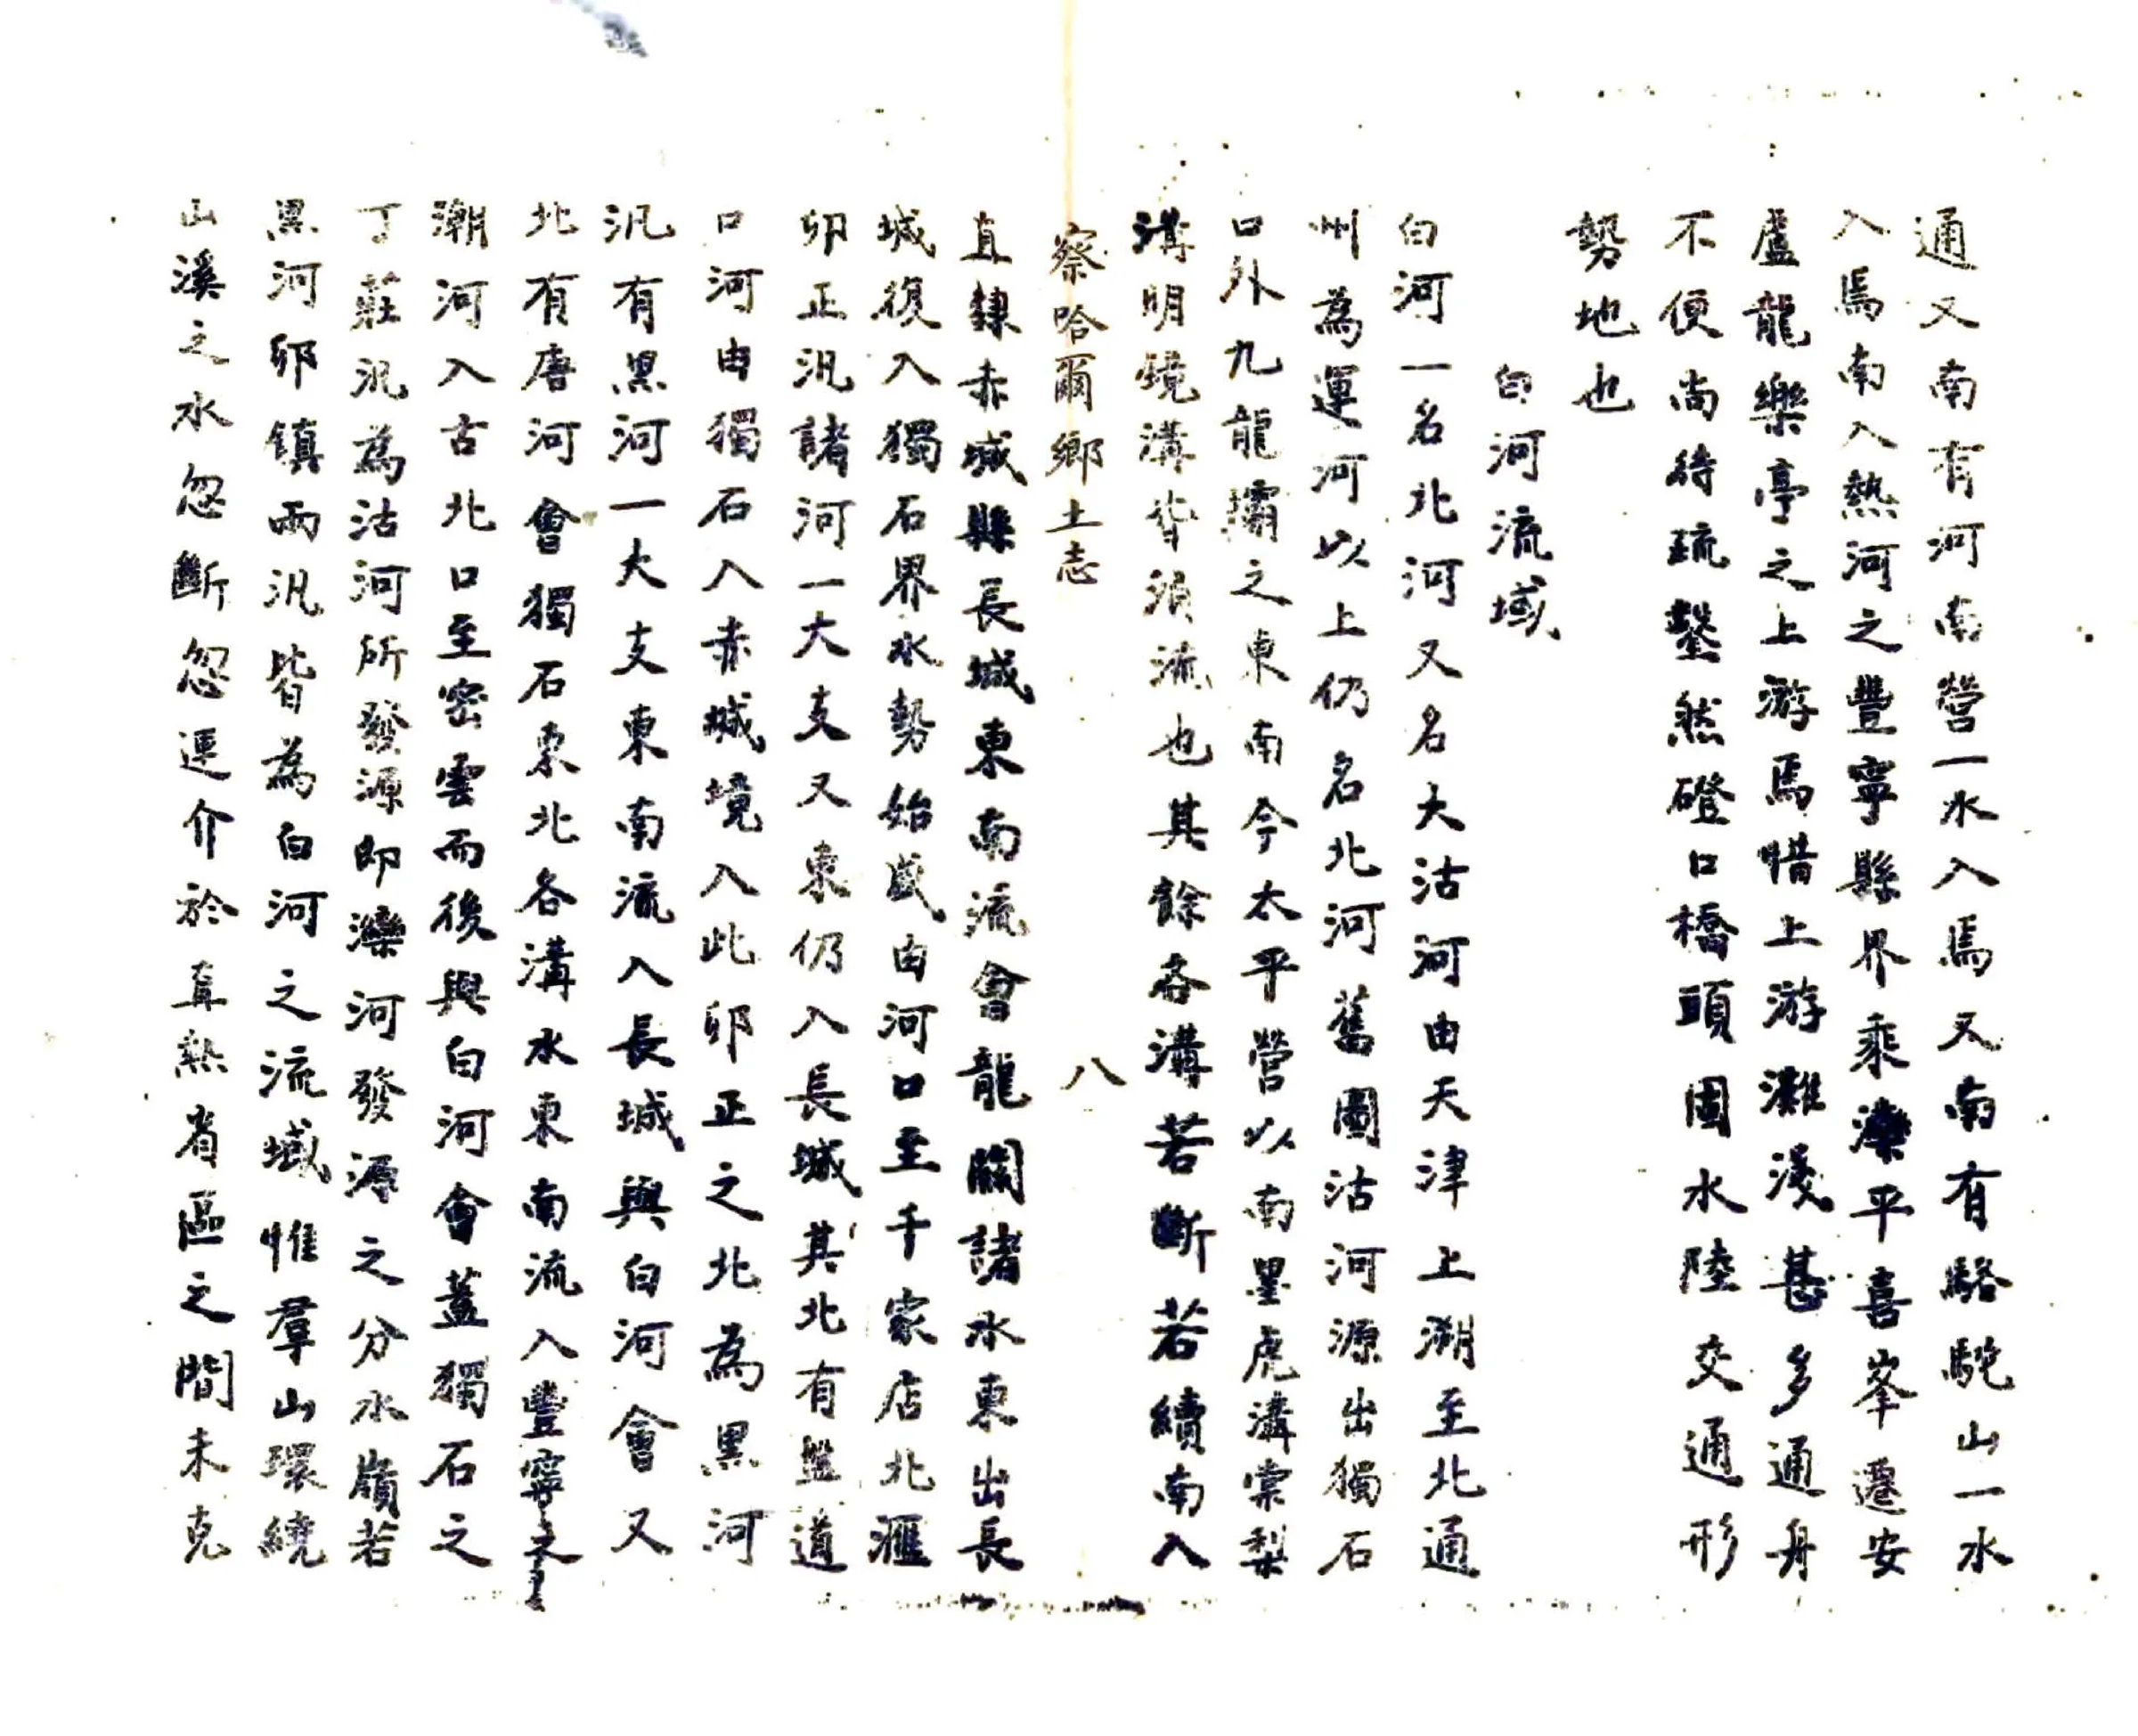 通又南有河南營一水入焉又南有駱駝山一水
入焉南入熱河之豐寧縣界乘灤平喜峯遷安
盧龍樂亭之上游焉惜上游灘淺甚多通舟
不便尚待疏鑿然磴口橋頭固水陸交通形
勢地也
白河流域
白河一名北河又名大沽河由天津上溯至北通
州為運河以上仍名北河舊圖沽河源出獨石
口外九龍壩之東南今太平營以南黑虎溝棠梨
溝明鏡溝皆須流也其餘各溝若斷若續南入
察哈爾鄉土志 八
直隸赤城縣長城東南流會龍關諸水東出長
城復入獨石界水勢始盛由河口至千家店北滙
卯正汛諸河一大支又東仍入長城其北有盤道
口河由獨石入赤城境入此卯正之北為黑河
汛有黑河一大支東南流入長城與白河會又
北有唐河會獨石東北各溝水東南流入豐寧之
潮河入古北口至密雲而後與白河會蓋獨石之
丁莊汛為沽河所發源即灤河發源之分水嶺若
黑河卯鎮兩汛皆為白河之流域惟羣山環繞
山溪之水忽斷忽連介於直熱省區之間未克